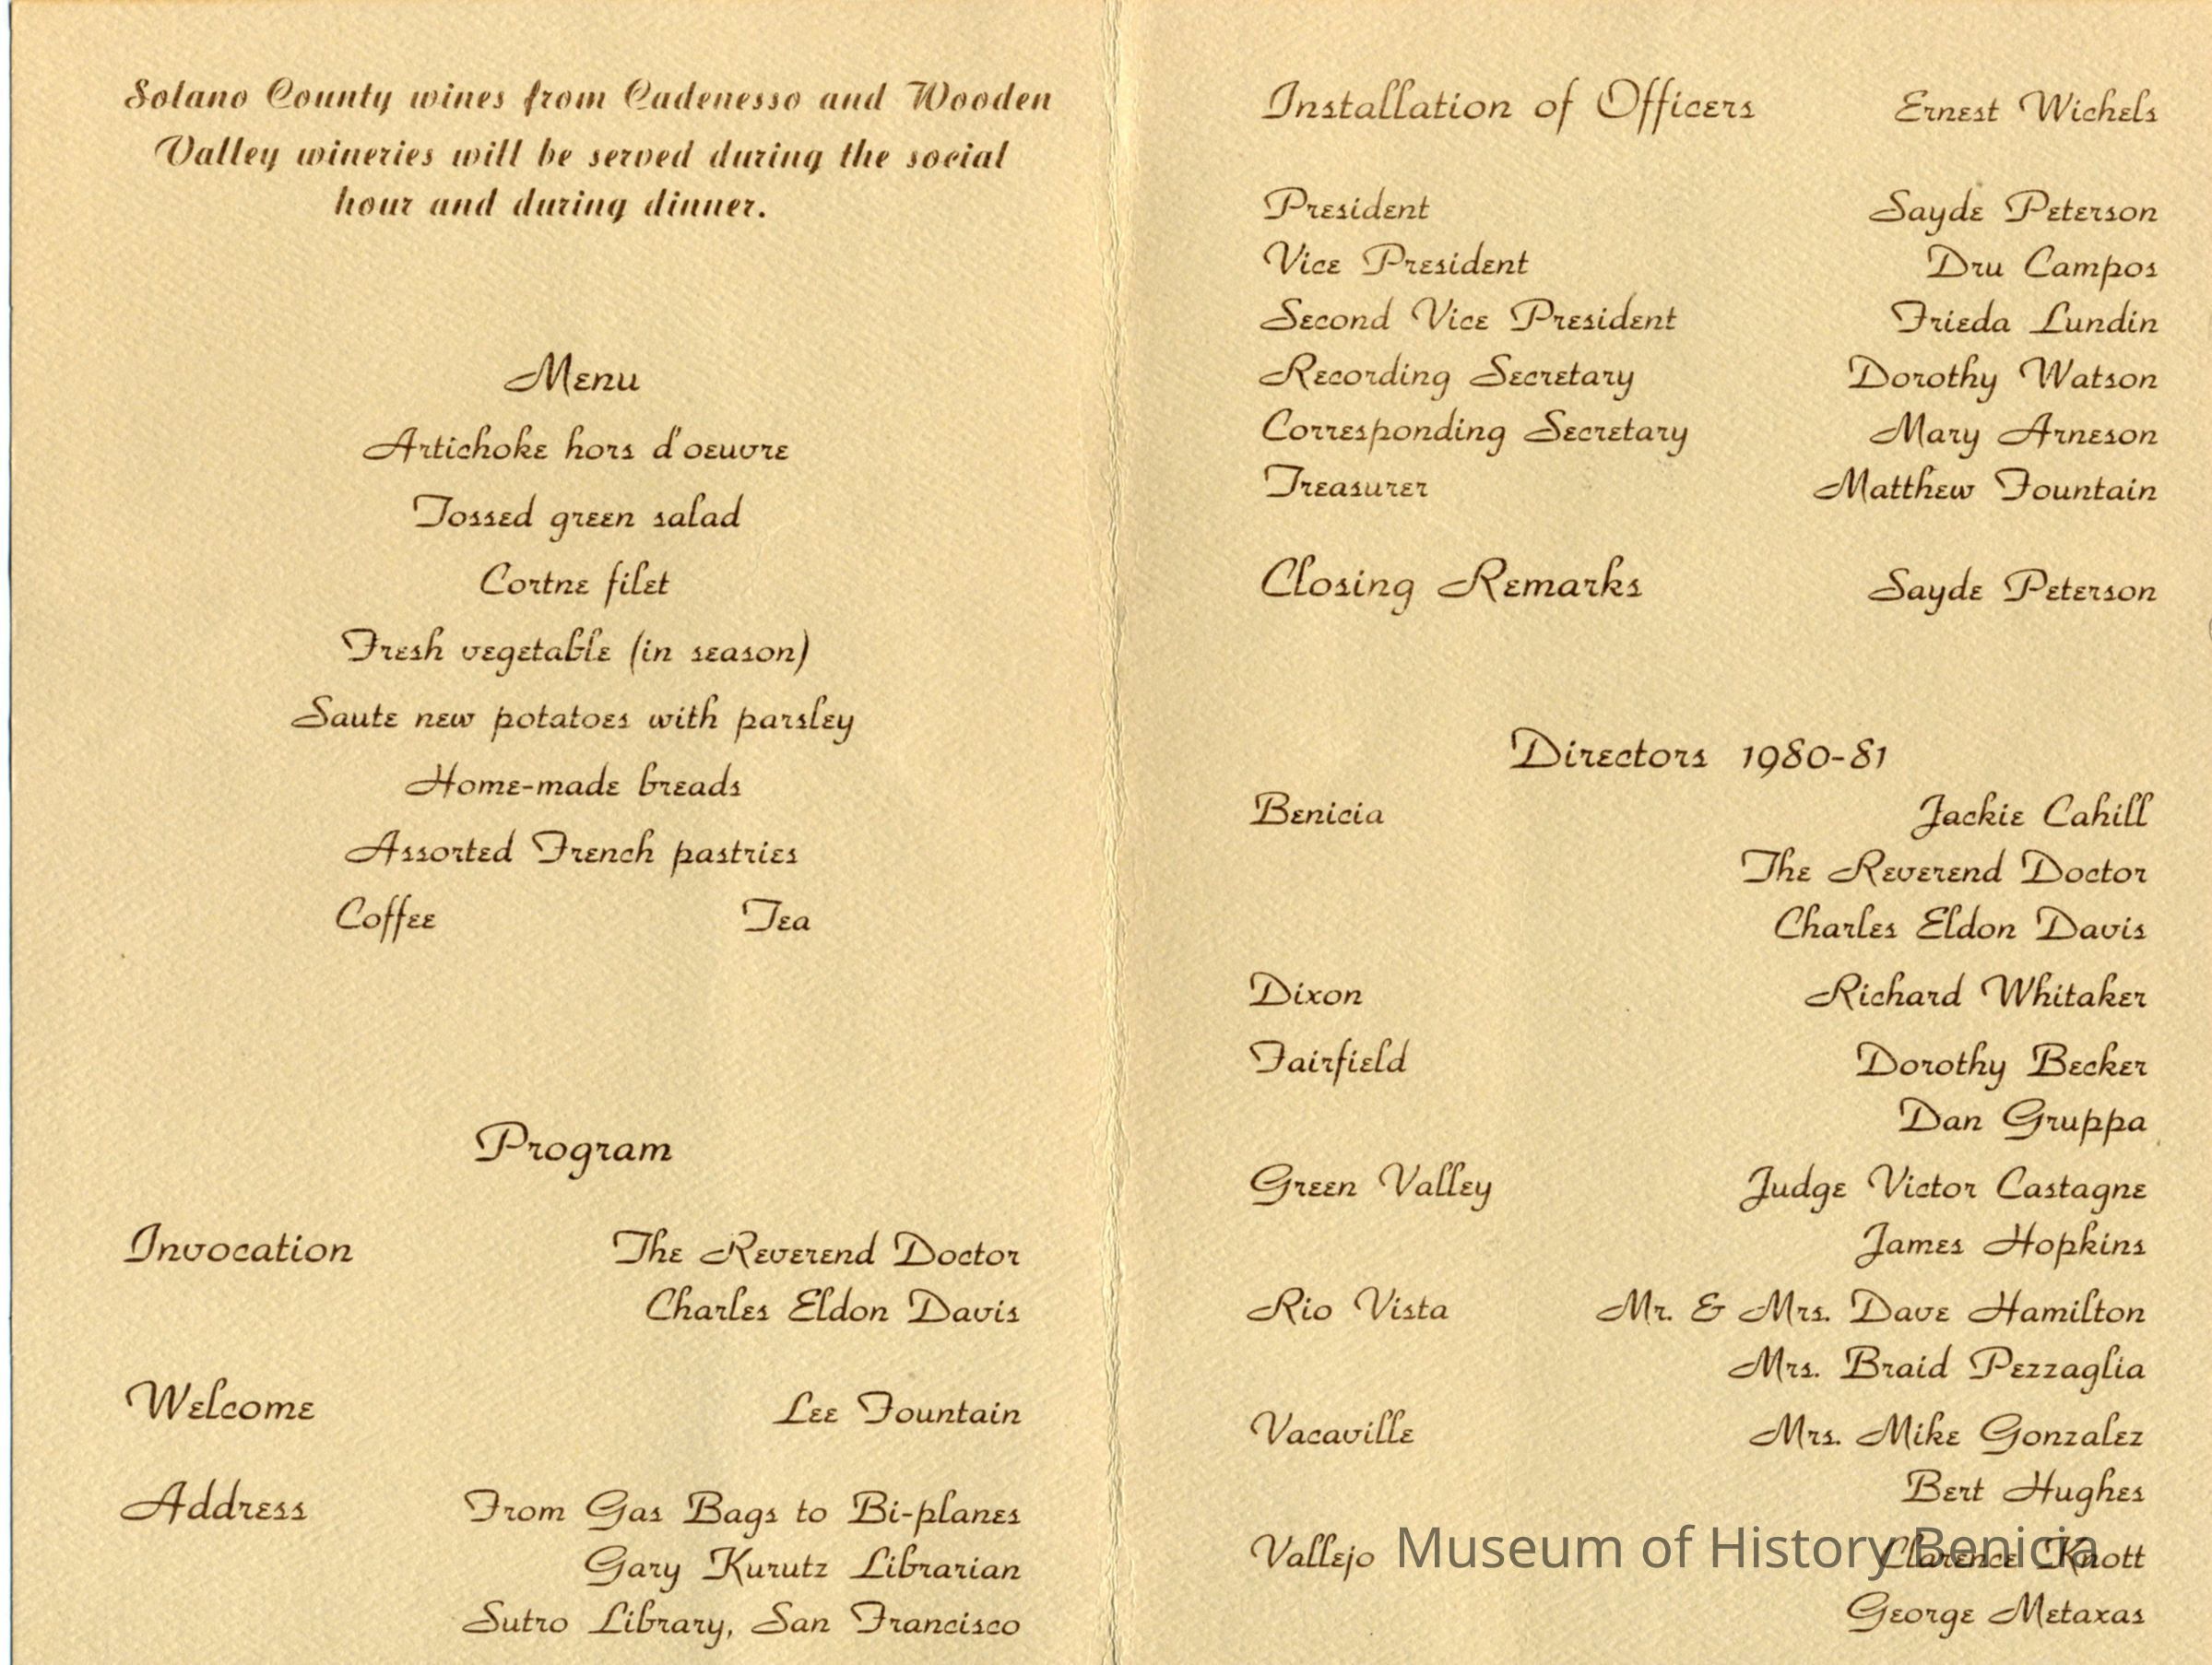 Solano County wines from Cadenesso and Wooden
Valley wineries will be served during the social
hour and during dinner.
Menu
Artichoke hors d'oeuvre
Tossed green salad
Cortne filet
Fresh vegetable (in season)
Saute new potatoes with parsley
Home-made breads
Assorted French pastries
Coffee Tea
Program
Invocation The Reverend Doctor
Charles Eldon Davis
Welcome Lee Fountain
Address From Gas Bags to Bi-planes
Gary Kurutz Librarian
Sutro Library, San Francisco
Installation of Officers Ernest Wichels
President Sayde Peterson
Vice President Dru Campos
Second Vice President Frieda Lundin
Recording Secretary Dorothy Watson
Corresponding Secretary Mary Arneson
Treasurer Matthew Fountain
Closing Remarks Sayde Peterson
Directors 1980-81
Benicia Jackie Cahill
The Reverend Doctor
Charles Eldon Davis
Dixon Richard Whitaker
Fairfield Dorothy Becker
Dan Gruppa
Green Valley Judge Victor Castagne
James Hopkins
Rio Vista Mr. & Mrs. Dave Hamilton
Mrs. Braid Pezzaglia
Vacaville Mrs. Mike Gonzalez
Bert Hughes
Vallejo Clarence Knott
George Metaxas
Museum of History Benicia